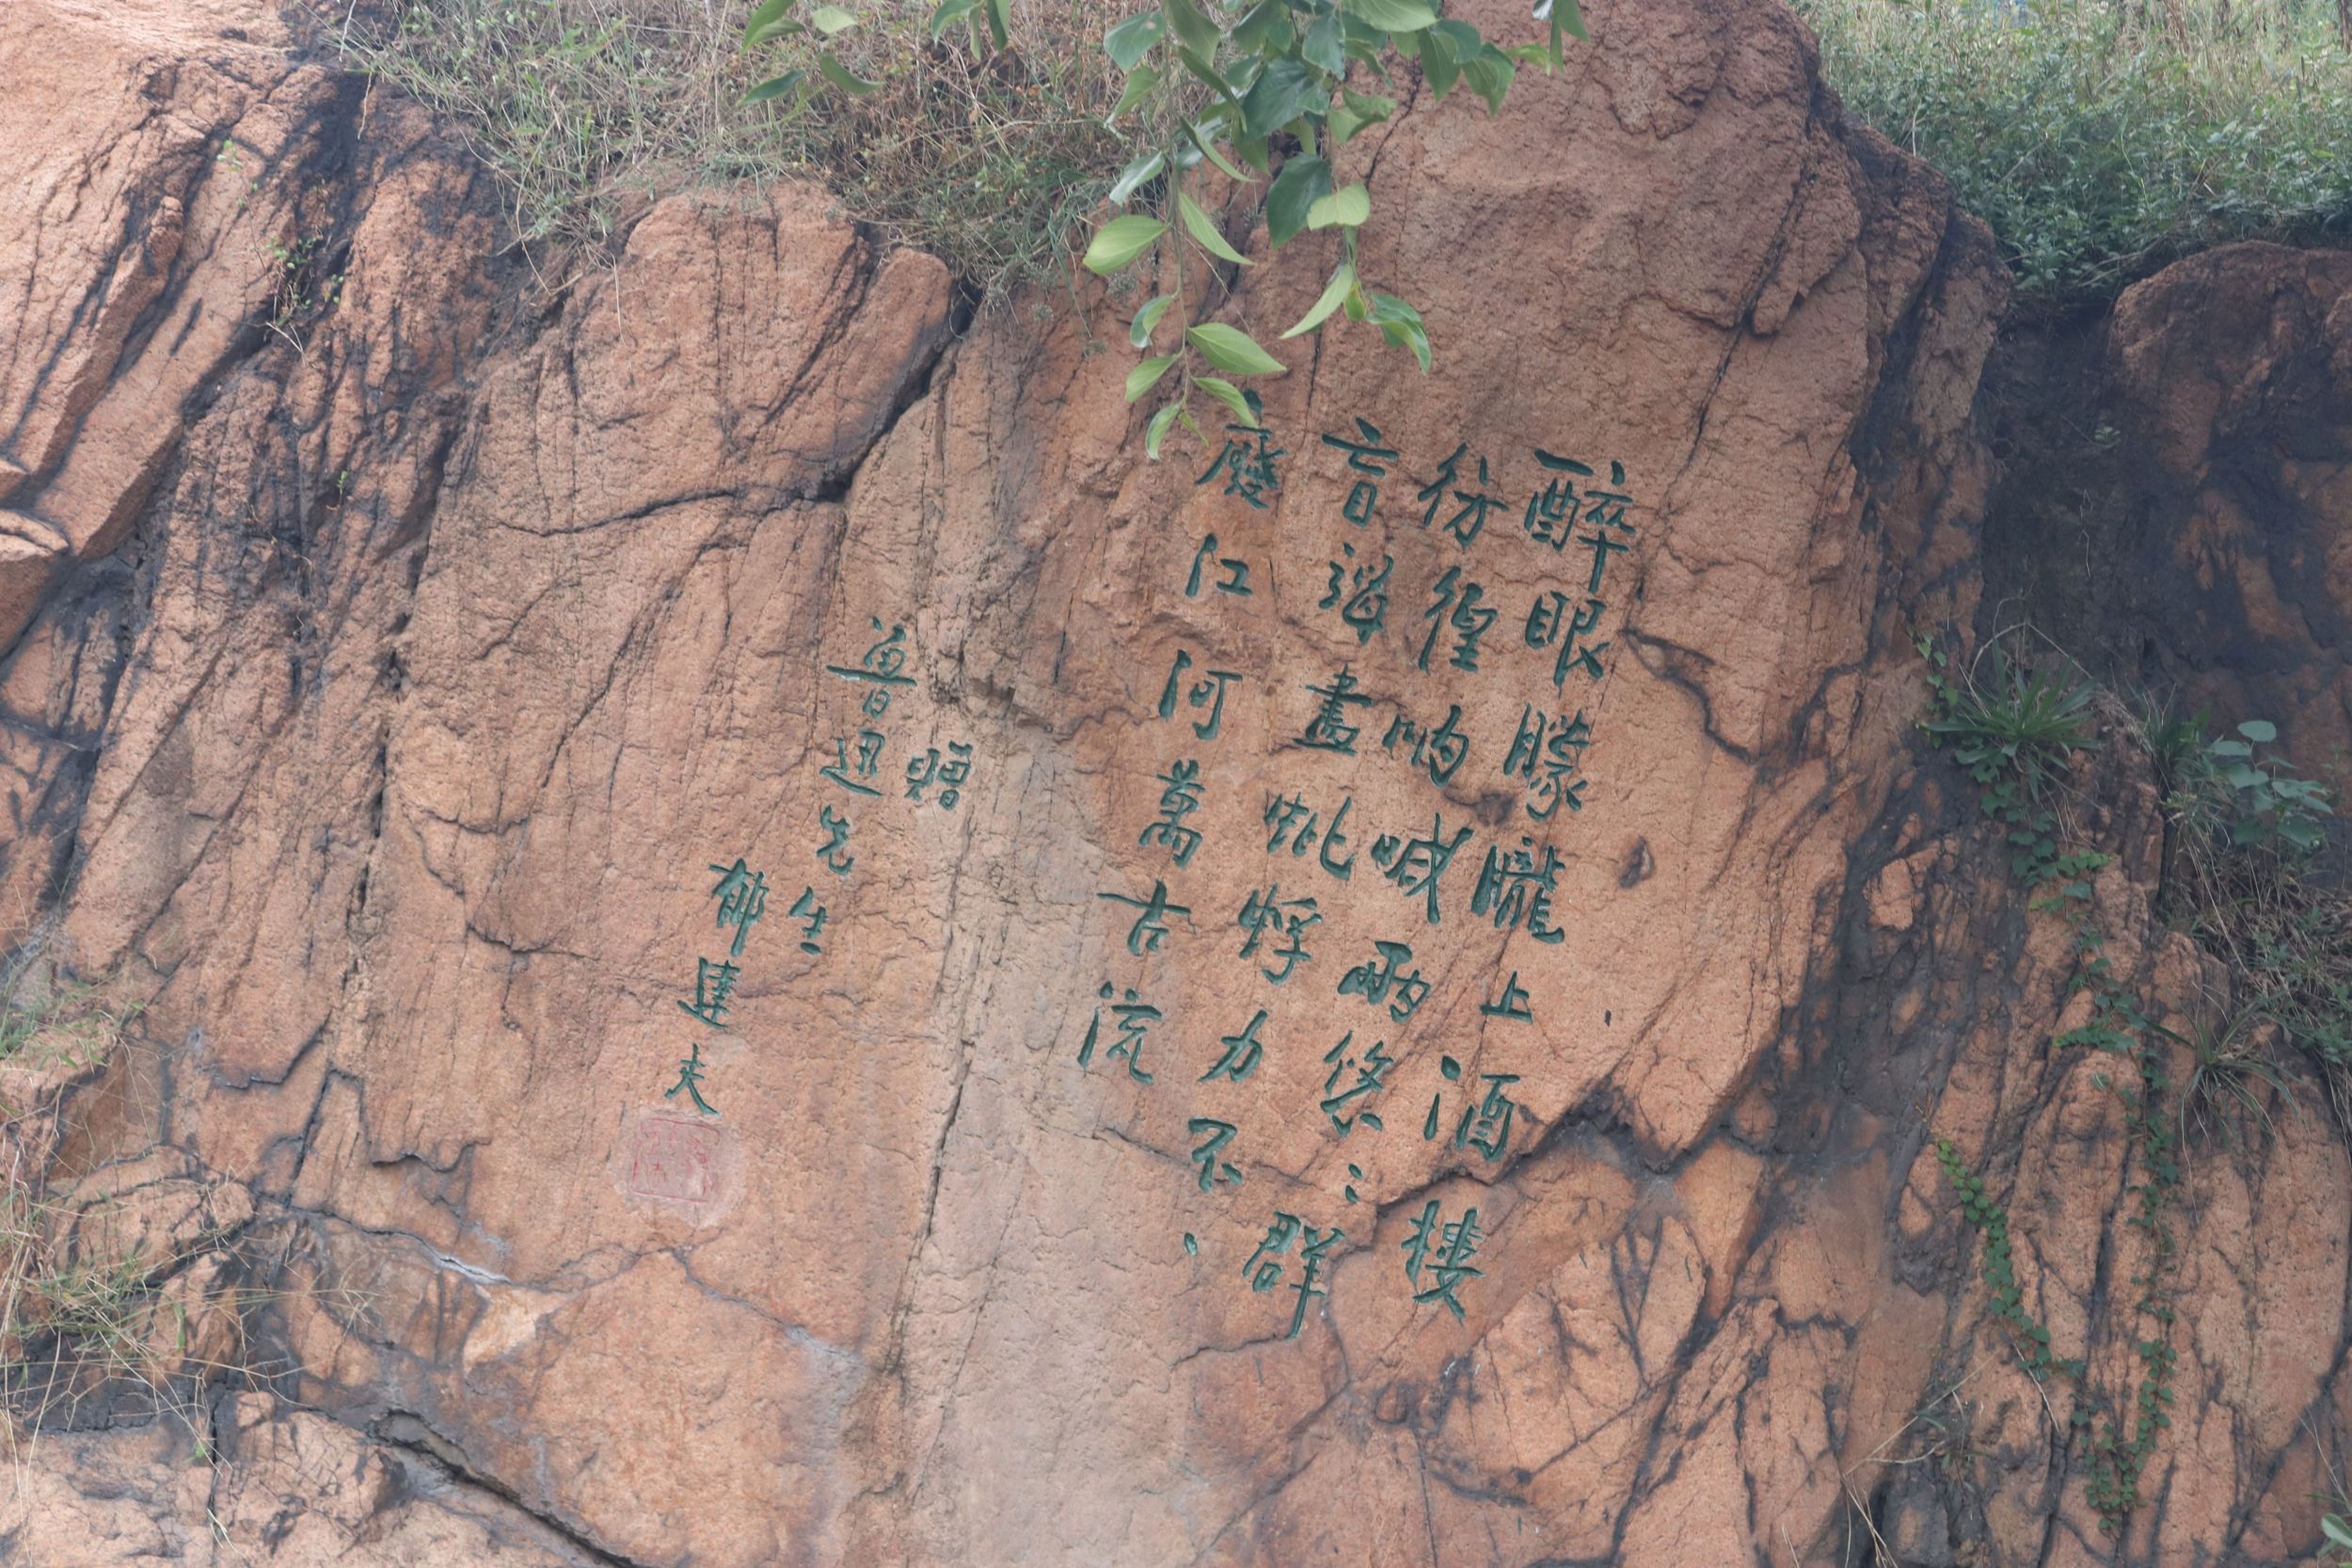 醉眼朦朧上酒樓
彷徨吶喊兩悠〻群
盲竭盡蚍蜉力不
廢江河萬古流
贈
魯迅先生
郁達夫